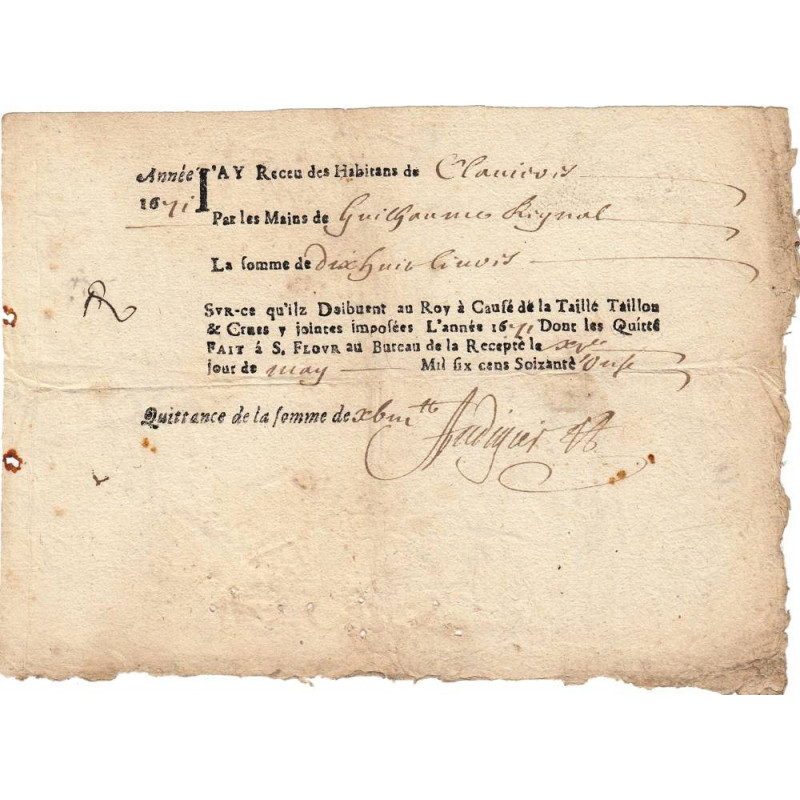 Année I'AY Receu des Habitans de Clauieres
1671
Par les Mains de Guilhaumes Rignal
La somme de dix huit liures
SVR-ce qu'ilz Doibuent au Roy à Causé dé la Taillé Taillon
& Crues y jointes imposées L'année 1671 Dont les Quitté
FAIT á S. FLOVR au Bureau de la Recepté le xve
jour de may Mil six cens Soixanté Onse
Quittance de la somme de xbiii tt
Audigier